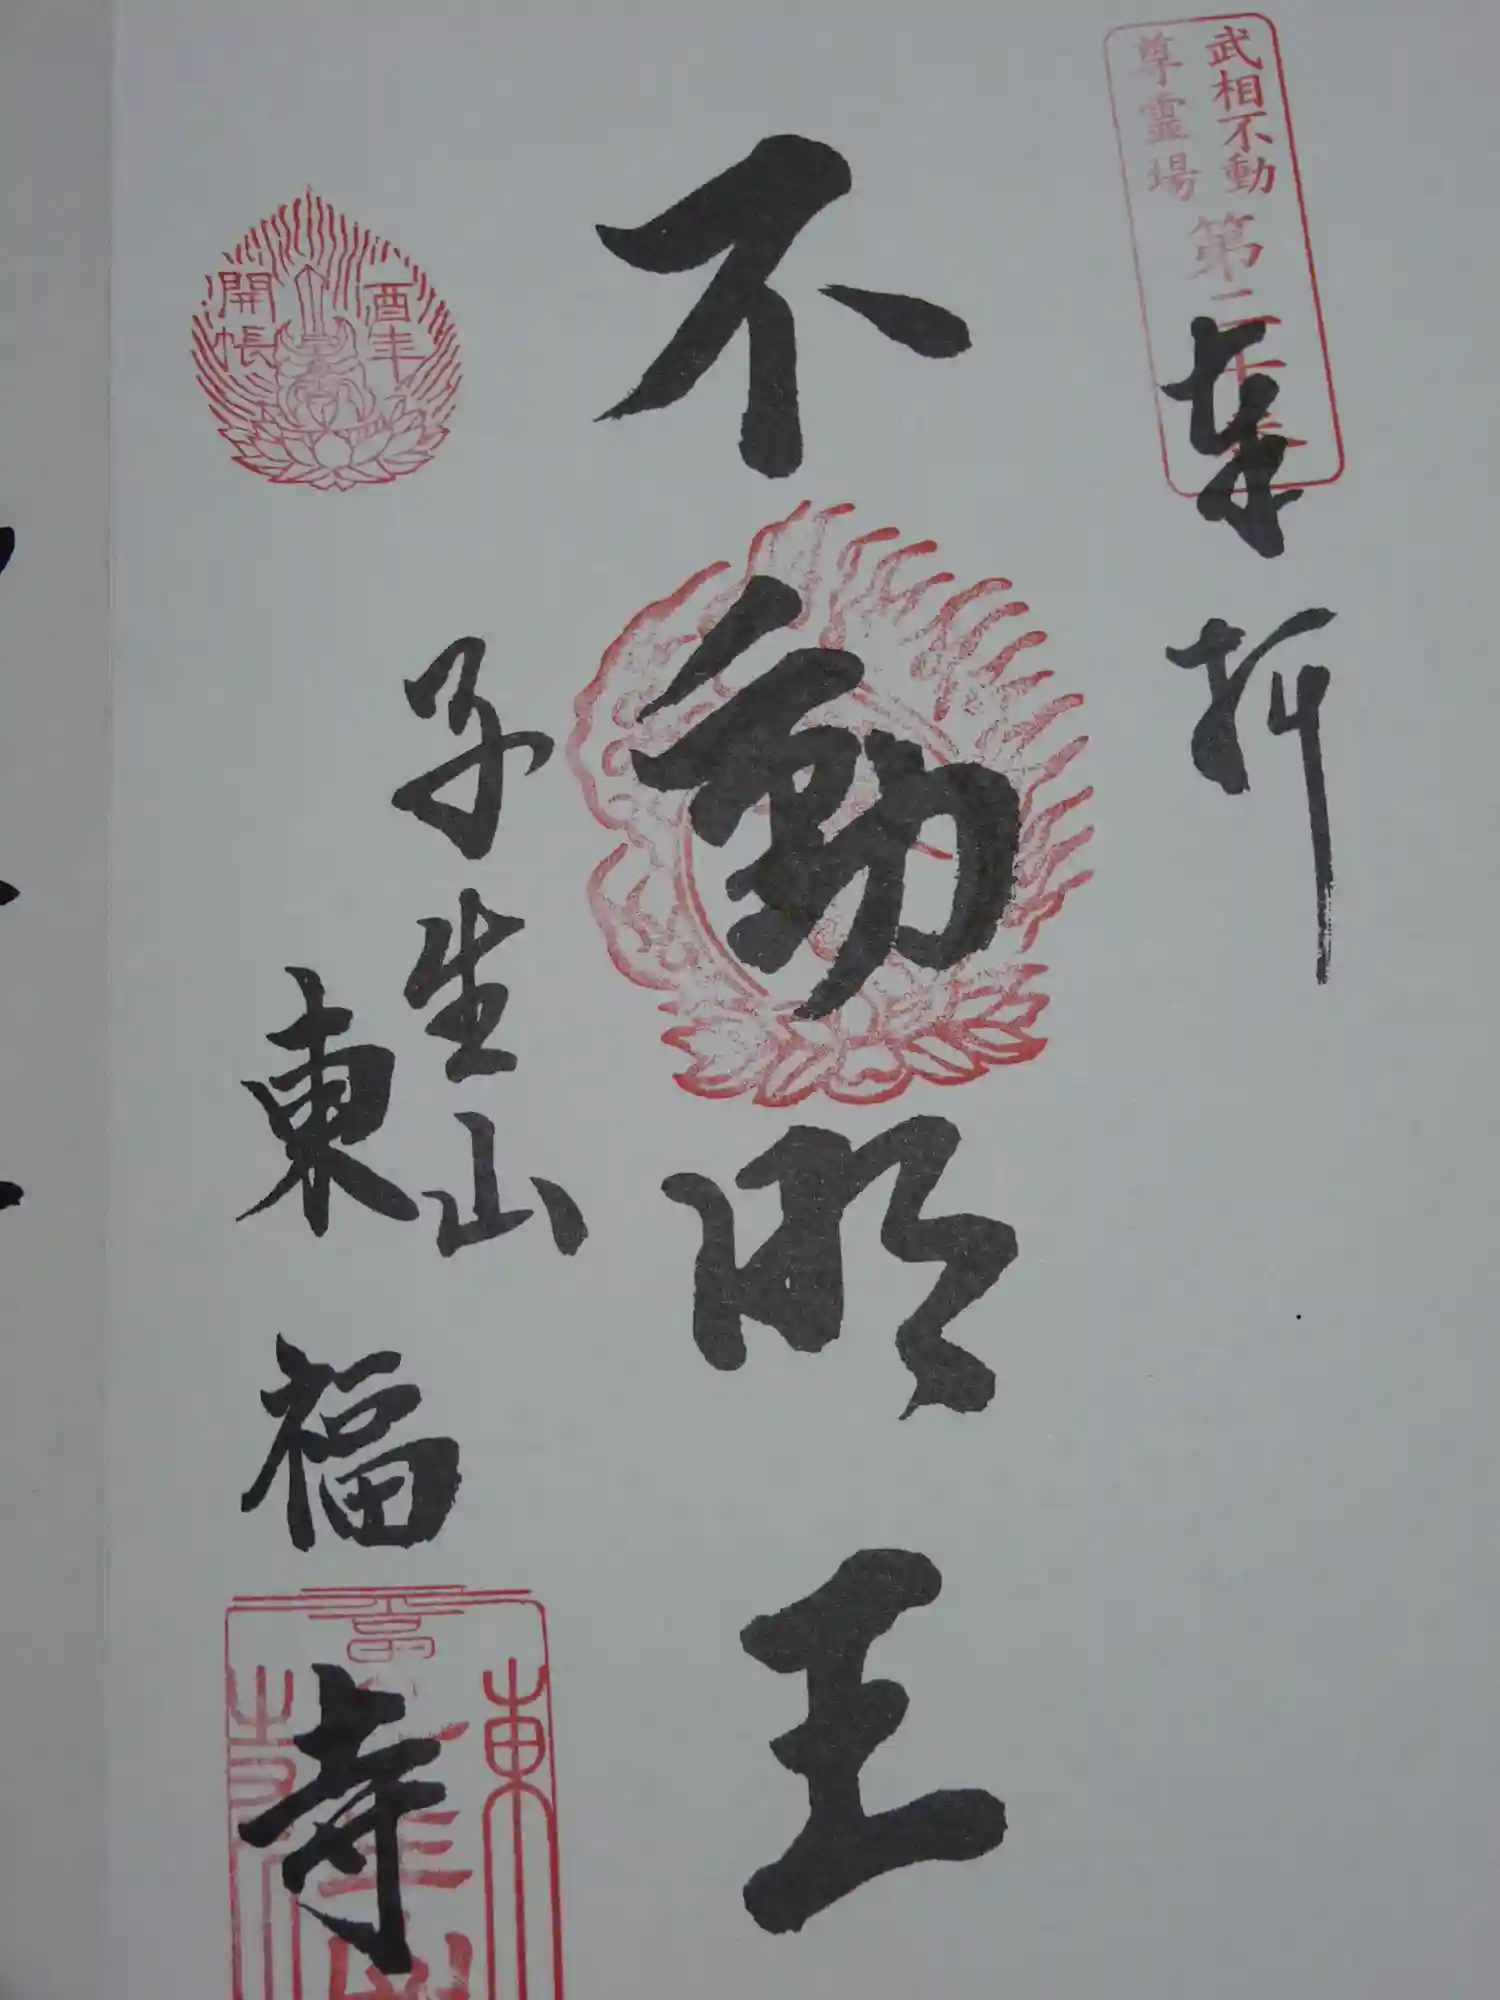 武相不動
尊霊場
第二十
奉拝
不動明王
酉年
開帳
子生山
東福寺
東
山
寺